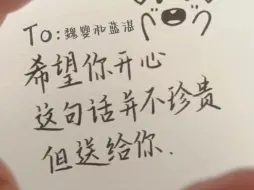 To:魏婴和蓝湛
希望你开心
这句话并不珍贵
但送给你.